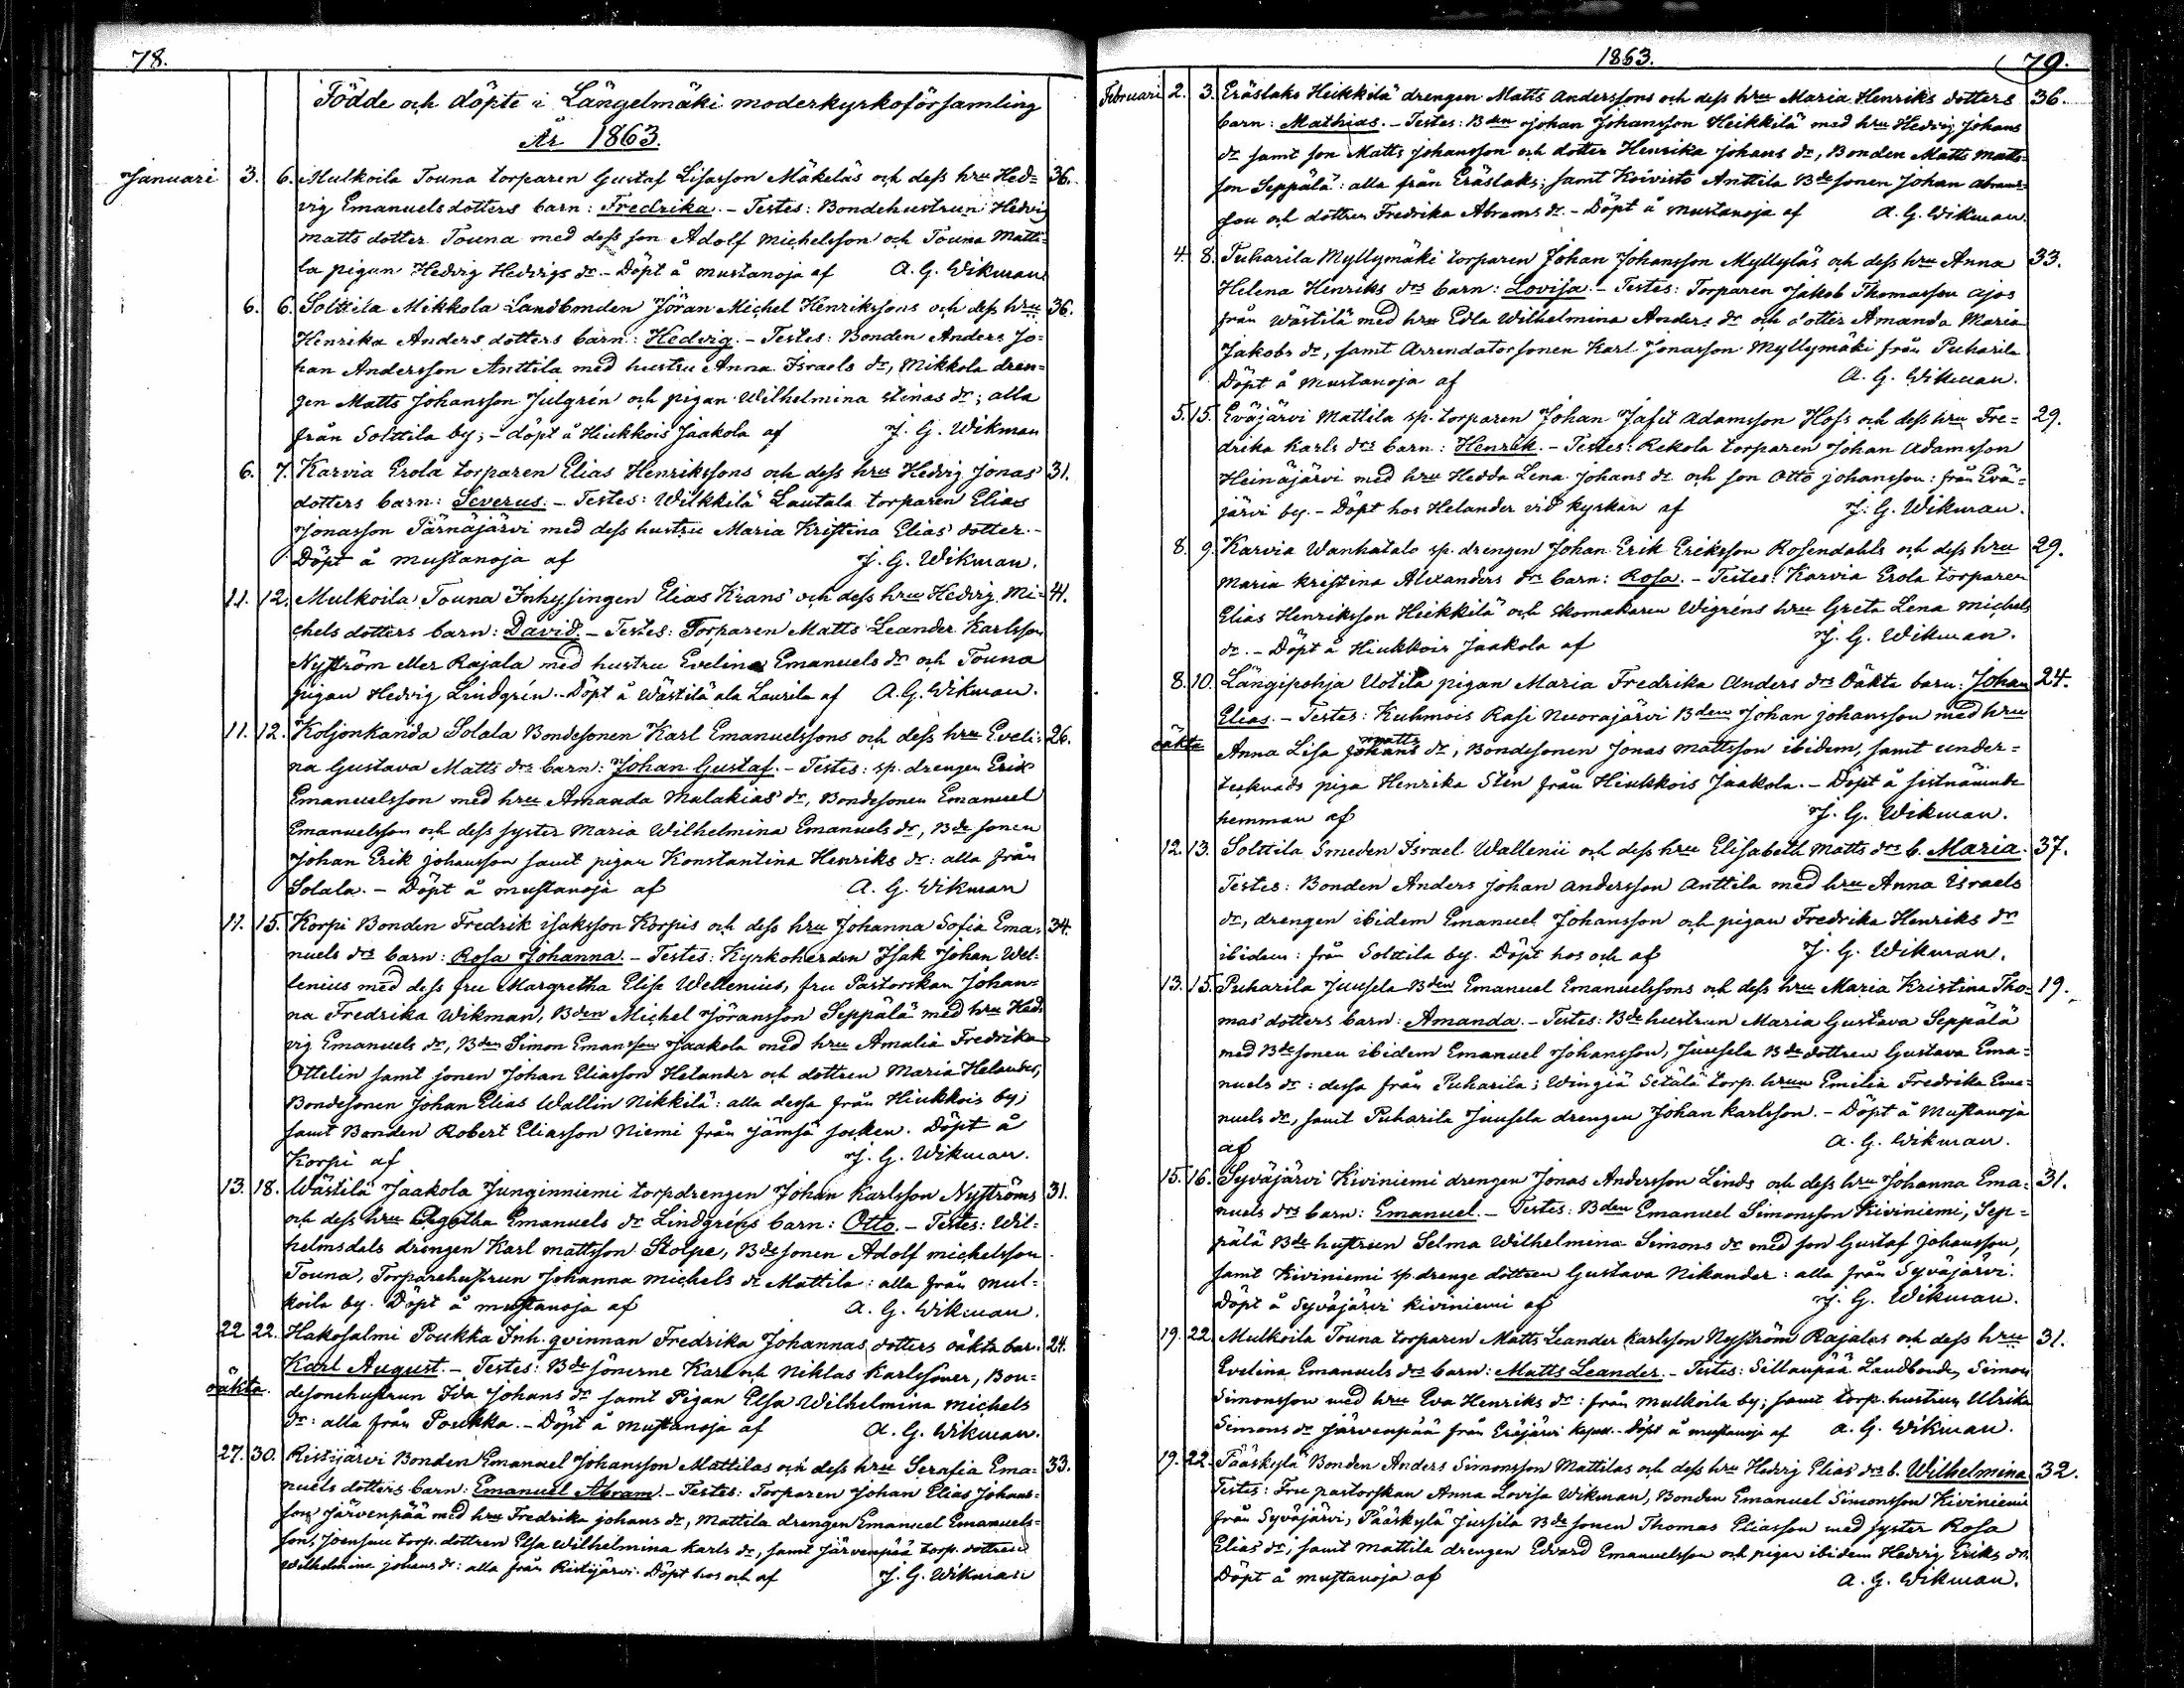 78.
Födde och döpte i Längelmäki moderkyrkoförsamling
År 1863.
Januari 3. 6. Mulkoila Touna torparen Gustaf Lisasson Mäkeläs och dess hru Hed= 36.
vig Emanuelsdotters barn: Fredrika. - Testes: Bondehustrun Hedvig
Mattsdotter Touna med dess son Adolf Michelsson och Touna Matti=
la pigan Hedvig Hedvigs dr. - Döpt å Mustanoja af A. G. Wikman
6. 6. Solttila Mikkola Landbonden Jöran Michel Henrikssons och dess hru 36.
Henrika Anders dotters barn: Hedvig. - Testes: Bonden Anders Jo=
han Andersson Anttila med hustru Anna Israels dr, Mikkola dren=
gen Matts Johansson Julgrén och pigan Wilhelmina Stinas dr; alla
från Solttila by; - döpt å Hiukkois Jaakola af J. G. Wikman
6. 7. Karvia Erola torparen Elias Henrikssons och dess hru Hedvig Jonas 31.
dotters barn: Severus. - Testes: Wilkkilä Lautala torparen Elias
Jonasson Tärnäjärvi med dess hustru Maria Kristina Elias dotter. -
Döpt å Mustanoja af J. G. Wikman.
11. 12. Mulkoila Touna Inhysingen Elias Krans och dess hru Hedvig Mi= 41.
chels dotters barn: David. - Testes: Torparen Matts Leander Karlsson
Nyström eller Rajala med hustru Evelina Emanuels dr och Touna
pigan Hedvig Lindgrén. - Döpt å Wästilä ala Laurila af A. G. Wikman.
11. 12. Koljonkanda Solala Bondesonen Karl Emanuelssons och dess hru Eveli= 26.
na Gustava Matts drs barn: Johan Gustaf. - Testes: sp. drengen Erik
Emanuelsson med hru Amanda Malakias dr, Bondesonen Emanuel
Emanuelsson och dess syster Maria Wilhelmina Emanuels dr, Bde sonen
Johan Erik Johansson samt pigan Konstantina Henriks dr: alla från
Solala. - Döpt å Mustanoja af A. G. Wikman
11. 15. Korpi Bonden Fredrik Isaksson Korpis och dess hru Johanna Sofia Ema= 34.
nuels drs barn: Rosa Johanna. - Testes: Kyrkoherden Isak Johan Wel=
lenius med dess fru Margretha Elise Wellenius, fru Pastorskan Johan=
na Fredrika Wikman, Bden Michel Jöransson Seppälä med hru Hed=
vig Emanuels dr, Bden Simon Emansson Jaakola med hru Amalia Fredrika
Ottelin samt sonen Johan Eliasson Helander och dottren Maria Helander,
Bondesonen Johan Elias Wallin Nikkilä: alla dessa från Hiukkois by;
samt Bonden Robert Eliasson Niemi från Jämsä socken. Döpt å
Korpi af J. G. Wikman.
13. 18. Wästilä Jaakola Junginniemi torpdrengen Johan Karlsson Nyströms 31.
och dess hru Agatha Emanuels dr Lindgréns barn: Otto. - Testes: Wil=
helmsdals drengen Karl Mattsson Stolpe, Bde sonen Adolf Michelsson
Touna, Torparehustrun Johanna Michels dr Mattila: alla från Mul=
koila by. Döpt å Mustanoja af A. G. Wikman.
22 22. Hakosalmi Poukka Inh. qvinnan Fredrika Johannas dotters oäkta bar: 24.
Karl August. - Testes: Bde sönerne Karl och Niklas Karlssoner, Bon=
oäkta. desonehustrun Ida Johans dr samt Pigan Elsa Wilhelmina Michels
dr: alla från Poukka. - Döpt å Mustanoja af A. G. Wikman.
27. 30. Ristijärvi Bonden Emanuel Johansson Mattilas och dess hru Serafia Ema= 33.
nuels dotters barn: Emanuel Abram. - Testes: Torparen Johan Elias Johans=
son Järvenpää med hru Fredrika Johans dr, Mattila drengen Emanuel Emanuels=
son, Joensuu torp. dottren Elsa Wilhelmina Karls dr, samt Järvenpää torp. dottren
Wilhelmina Johans dr: alla från Ristijärvi. Döpt hos och af J. G. Wikman
1863. 79.
Februari 2. 3. Eräslaks Heikkilä drengen Matts Anderssons och dess hru Maria Henriks dotters 36.
barn: Mathias. - Testes: Bden Johan Johansson Heikkilä med hru Hedvig Johans
dr samt son Matts Johansson och dotter Henrika Johans dr, Bonden Matts Matts=
son Seppälä: alla från Eräslaks; samt Koivisto Anttila Bde sonen Johan Abrams=
son och dottren Fredrika Abrams dr. - Döpt å Mustanoja af A. G. Wikman
4. 8. Puharila Myllymäki torparen Johan Johansson Myllyläs och dess hru Anna 33.
Helena Henriks drs barn: Lovisa. - Testes: Torparen Jakob Thomasson Ajos
från Wästilä med hru Edla Wilhelmina Anders dr och dotter Amanda Maria
Jakobs dr, samt Arrendatorsonen Karl Jonasson Myllymäki från Puharila
Döpt å Mustanoja af A. G. Wikman.
5. 15. Eväjärvi Mattila sp. torparen Johan Jafet Adamsson Hofs och dess hru Fre= 29.
drika Karls drs barn: Henrik. - Testes: Rekola torparen Johan Adamsson
Heinäjärvi med hru Hedda Lena Johans dr och son Otto Johansson: från Evä=
järvi by. - Döpt hos Helander vid kyrkan af J. G. Wikman.
8. 9. Karvia Wanhatalo sp. drengen Johan Erik Eriksson Rosendahls och dess hru 29.
Maria Kristina Alexanders drs barn: Rosa. - Testes: Karvia Erola torparen
Elias Henriksson Heikkilä och Skomakaren Wigréns hru Greta Lena Michels
dr. - Döpt å Hiukkois Jaakola af J. G. Wikman.
8. 10. Längipohja Uotila pigan Maria Fredrika Anders drs Oäkta barn: Johan 24.
Elias. - Testes: Kuhmois Rasi Nuorajärvi Bden Johan Johansson med hru
matts
oäkta Anna Lisa Johans dr, Bondesonen Jonas Mattsson ibidem, samt under=
tecknads piga Henrika Stén från Hiukkois Jaakola. - Döpt å sistnämnde
hemman af J. G. Wikman.
12. 13. Solttila Smeden Israel Wallenii och dess hru Elisabeth Matts drs b. Maria. 37.
Testes: Bonden Anders Johan Andersson Anttila med hru Anna Israels
dr, drengen ibidem Emanuel Johansson och pigan Fredrika Henriks dr
ibidem: från Solttila by. Döpt hos och af J. G. Wikman.
13. 15. Puharila Juusela Bden Emanuel Emanuelssons och dess hru Maria Kristina Tho= 19.
mas dotters barn: Amanda. - Testes: Bde hustrun Maria Gustava Seppälä
med Bde sonen ibidem Emanuel Johansson, Juusela Bde dottren Gustava Ema=
nuels dr: dessa från Puharila; Wingiä Setälä torp. hrun Emilia Fredrika Ema=
nuels dr, samt Puharila Juusela drengen Johan Karlsson. - Döpt å Mustanoja
af A. G. Wikman.
15. 16. Syväjärvi Kiviniemi drengen Jonas Andersson Linds och dess hru Johanna Ema= 31.
nuels drs barn: Emanuel. - Testes: Bden Emanuel Simonsson Kiviniemi, Sep=
pälä Bde hustrun Selma Wilhelmina Simons dr med son Gustaf Johansson,
samt Kiviniemi sp. drenge dottren Gustava Nikander: alla från Syväjärvi.
Döpt å Syväjärvi Kiviniemi af J. G. Wikman.
19. 22. Mulkoila Touna torparen Matts Leander Karlsson Nyström Rajalas och dess hru 31.
Evelina Emanuels drs barn: Matts Leander. - Testes: Sillanpää Landbonde, Simon
Simonsson med hru Eva Henriks dr: från Mulkoila by; samt torp. hustrun Ulrika
Simons dr Järvenpää från Eräjärvi kapell. - Döpt å Mustanoja af A. G. Wikman.
19. 22. Pääskylä Bonden Anders Simonsson Mattilas och dess hru Hedvig Elias drs b. Wilhelmina 32.
Testes: Fru pastorskan Anna Lovisa Wikman, Bonden Emanuel Simonsson Kiviniemi
från Syväjärvi, Pääskylä Jussila Bde sonen Thomas Eliasson med syster Rosa
Elias dr; samt Mattila drengen Edvard Emanuelsson och pigan ibidem Hedvig Eriks dr.
Döpt å Mustanoja af A. G. Wikman.